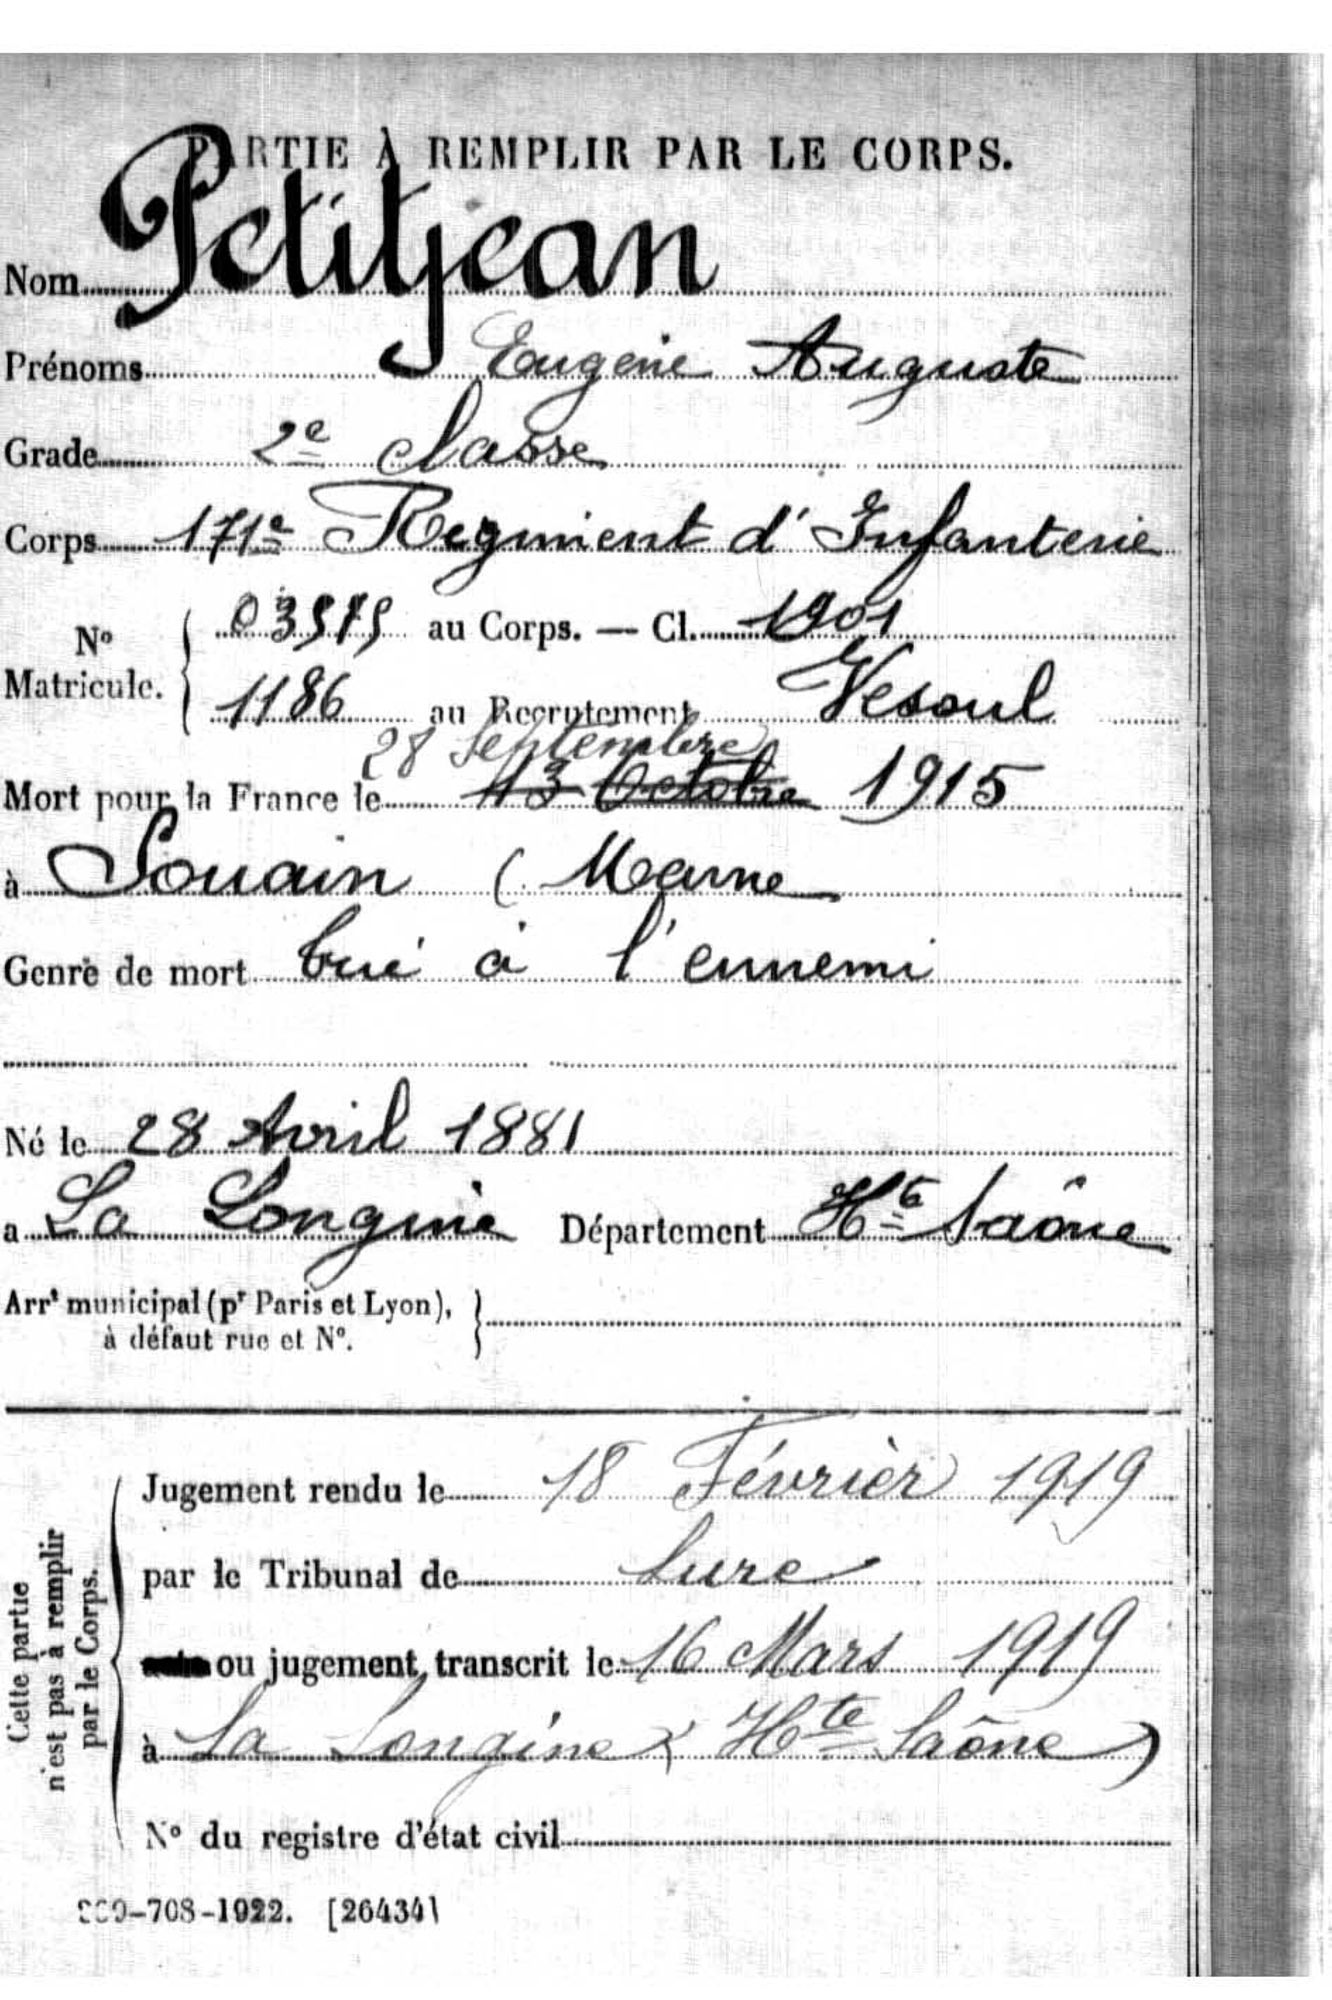 PARTIE À REMPLIR PAR LE CORPS.
Nom Petitjean
Prénoms Eugène Auguste
Grade 2e classe
Corps 171e Regiment d'Infanterie
No Matricule. { 03575 au Corps. — Cl. 1901
1186 au Recrutement Vesoul
28 Septembre
Mort pour la France le 13 Octobre 1915
à Souain (Marne
Genre de mort tué à l'ennemi
Né le 28 Avril 1881
a La Longine Département Hte Saône
Arrt municipal (pr Paris et Lyon), }
à défaut rue et No.
Cette partie
n'est pas à remplir
par le Corps.
Jugement rendu le 18 Février 1919
par le Tribunal de Lure
ou jugement, transcrit le 16 Mars 1919
à La Longine (Hte Saône)
No du registre d'état civil
-708-1922. [26434]